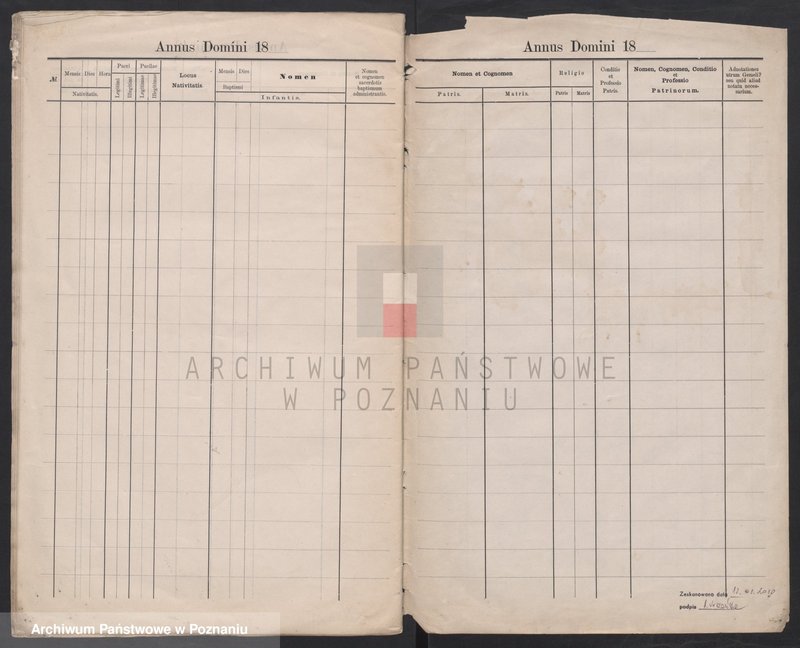 Annus Domini 18
№
Mensis Dies Hora
Nativitatis.
Pueri
Legitimi
Illegitimi
Puellae
Legitimae
Illegitimae
Locus
Nativitatis.
Mensis Dies
Baptismi
Nomen
Infantis.
Nomen
et cognomen
sacerdotis
baptismum
administrantis.
Annus Domini 18
Nomen et Cognomen
Patris.
Matris.
Religio
Patris
Matris
Conditio
et
Professio
Patris.
Nomen, Cognomen, Conditio
et
Professio
Patrinorum.
Adnotationes
utrum Gemeli?
seu quid aliud
notatu neces-
sarium.
ARCHIWUM PAŃSTWOWE
W POZNANIU
Zeskanowano data
podpis
Archiwum Państwowe w Poznaniu